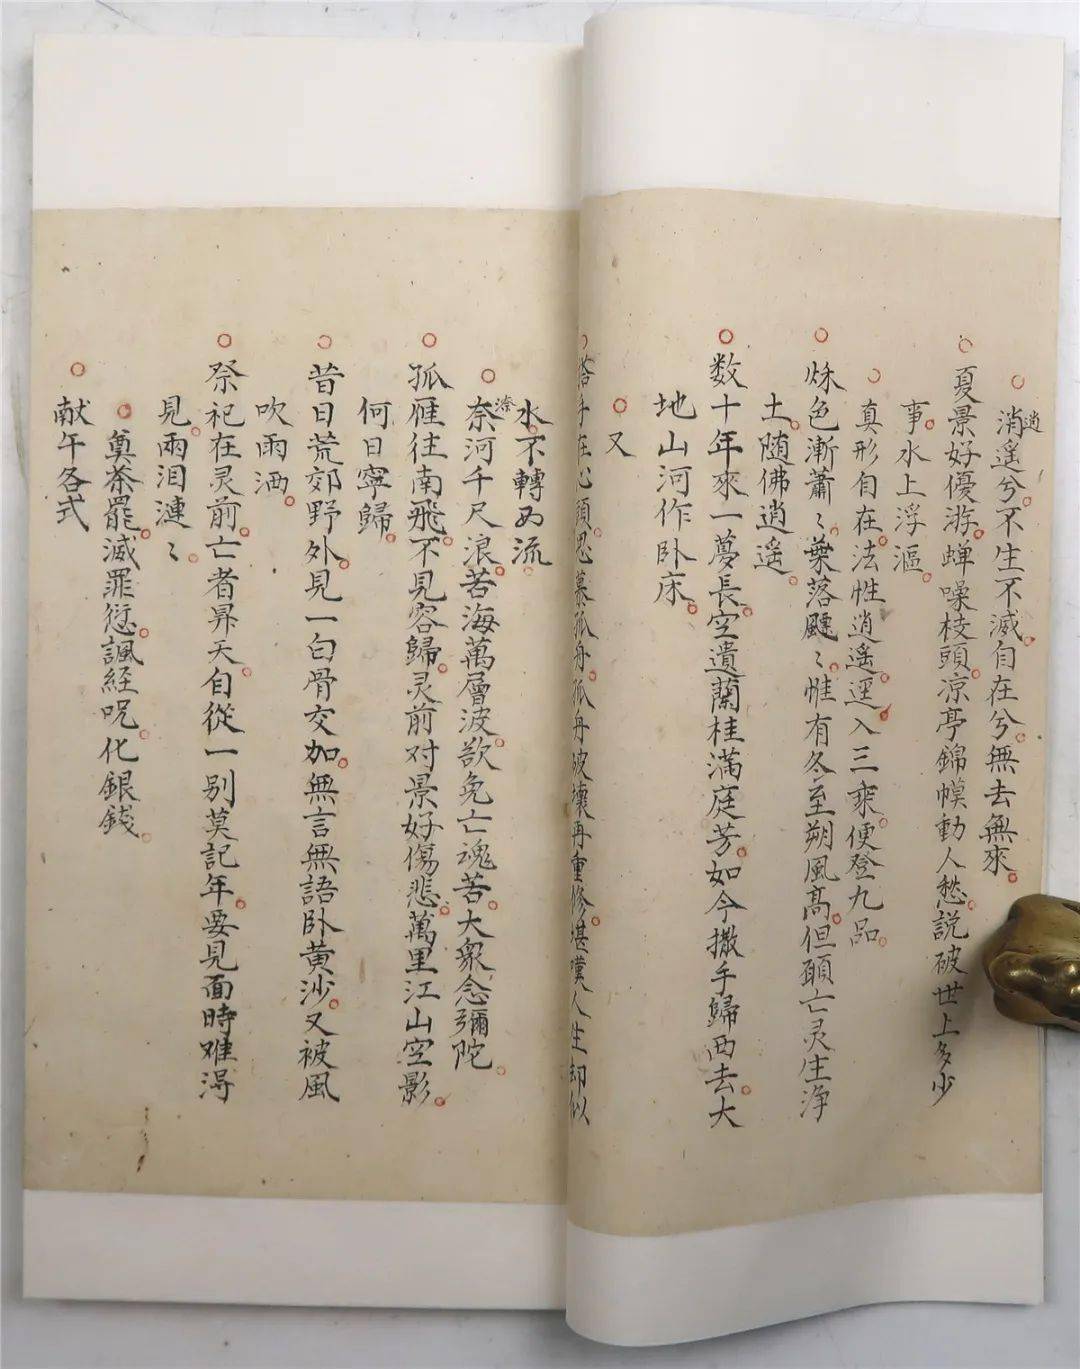 消遙兮不生不滅自在兮無去無來
逍
夏景好優游蝉噪枝頭凉亭錦幙動人愁說破世上多少
事水上浮漚
真形自在法性逍遥逕入三乘便登九品
秌色漸蕭〻葉落飃〻惟有冬至朔風高但願亡灵生浄
土随佛逍遥
数十年來一夢長空遺蘭桂滿庭芳如今撒手歸西去大
地山河作卧床
又
搭手在心頭思慕孤舟孤舟破壞再重修堪嘆人生却似
水不轉為流
渿
奈河千尺浪苦海萬層波欲免亡魂苦大衆念彌陀
孤雁往南飛不見容歸灵前对景好傷悲萬里江山空影
何日寧歸
昔日荒郊野外見一白骨交加無言無語卧黄沙又被風
吹雨洒
祭祀在灵前亡者昇天自從一别莫記年要見面時难淂
見兩泪漣〻
奠茶罷滅罪愆諷経呪化銀錢
献午各式